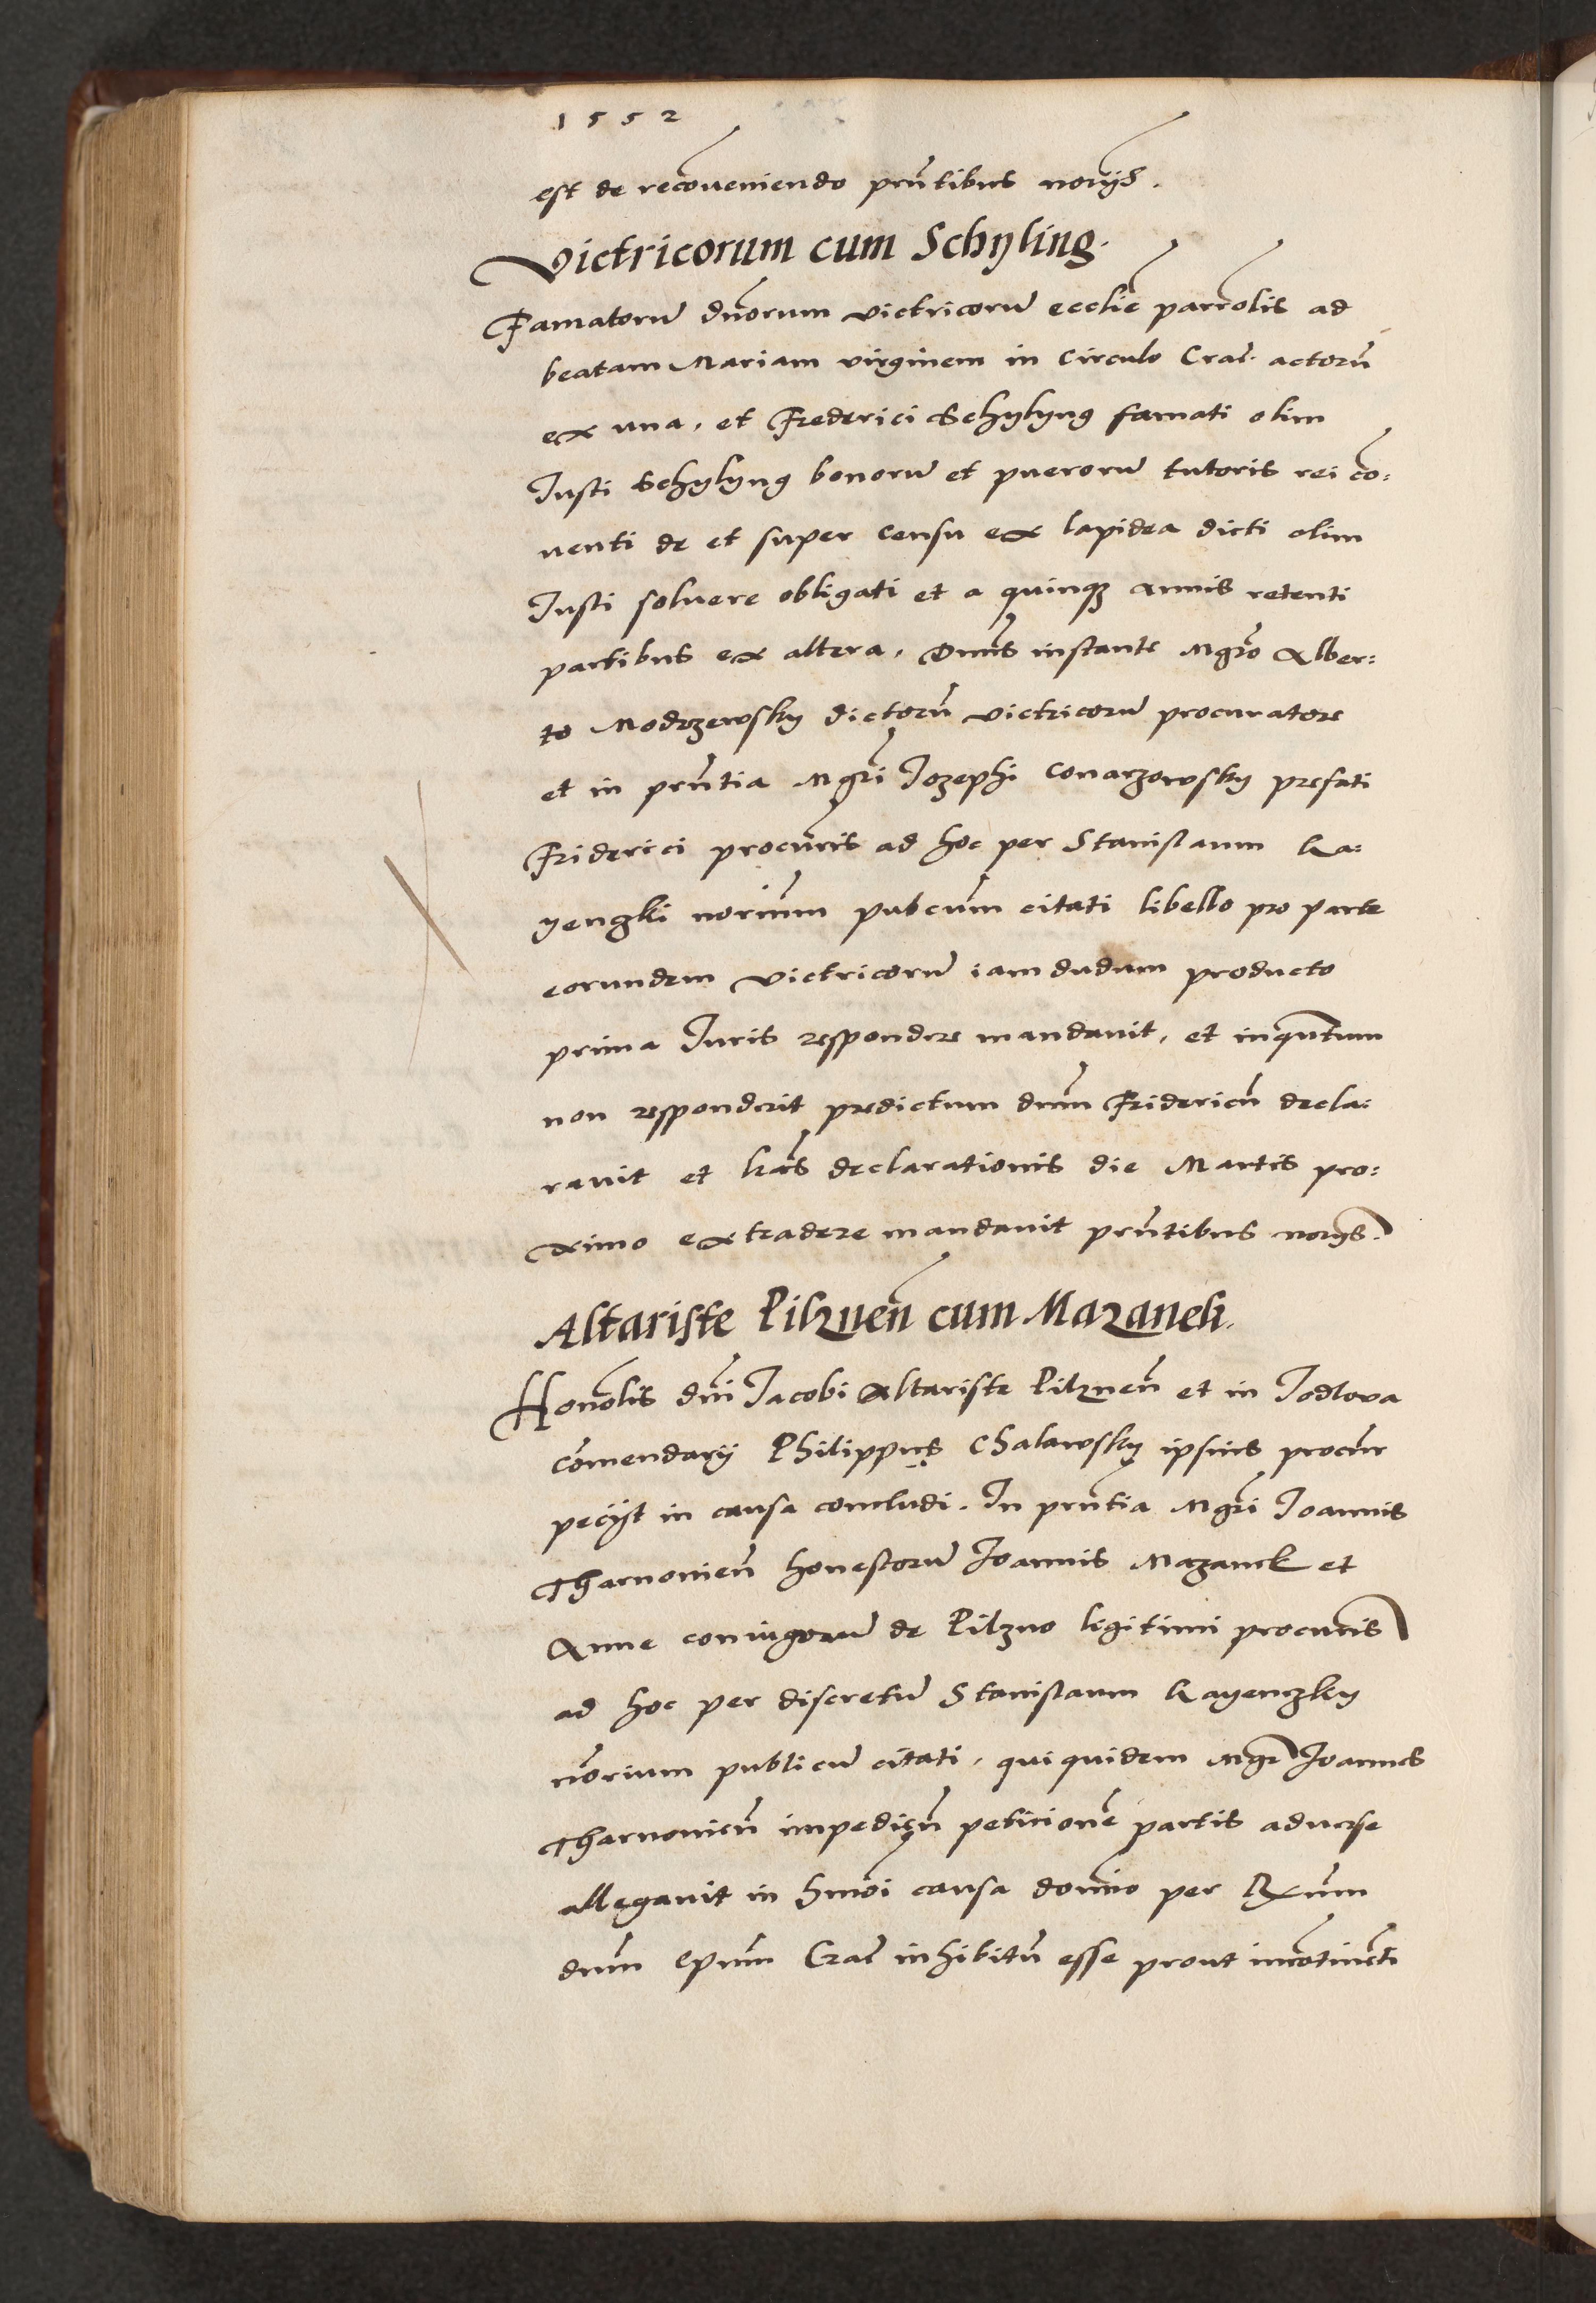 1552
est de recōveniendo prn̄tibus norijs.
Victricorum cum Schÿling.
Famatorū dn̄orum victricorū ecclīe parrōlis ad
beatam Mariam virginem in Circulo Crac̄. actorū
ex una, et Frederici Schÿlÿng famati olim
Justi Schÿlÿng bonorū et puerorū tutoris rei cō:
uenti de et super censu ex lapidea dicti olim
Justi soluere obligati et a quinqʒ annis retenti
partibus ex altera, Dn̄us instante Mgr̄o Alber:
to Modrzewsky dictorū victricorū procuratore
et in prn̄tia Mgr̄i Jozephi Conarzowsky prefati
Friderici procūris ad hoc per Stanislaum Ka:
yenczki norīum pubcūm citati libello pro parte
eorundem victricorū iam dudum producto
prima Juris respondere mandauit, et inqūtum
non responderit predictum dn̄m Fridericū decla:
rauit et lr̄as declarationis die Martis pro:
ximo extradere mandauit prn̄tibus norijs.
Altariste Pilznen̄ cum Mazanek.
Honōlis dn̄i Jacobi Altariste Pilznen̄ et in Jodlova
cōmendarij Philippus Chalawsky ipsius procūr
pecijt in causa concludi. In prn̄tia Mgr̄i Joannis
Tharnovien̄ honestorū Joannis Mazanek et
Anne coniugorū de Pilzno ligitimi procūris
ad hoc per discretū Stanislaum Kayenczky
nōrium publicū citati, qui quidem Mgr̄ Joannes
Tharnovien̄ impedien̄ peticionē partis aduerse
allegauit in hmōi causa domīo per Rx̄um
dn̄m Ep̄um Crac̄ inhibitū esse prout incōtinēti